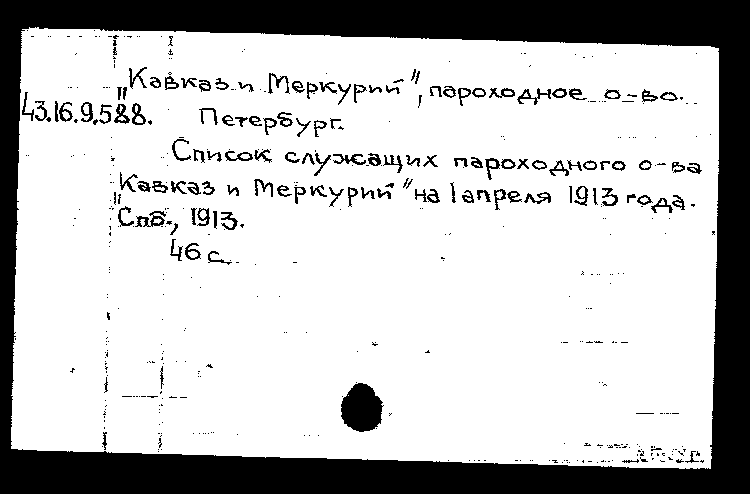 "Кавказ и Меркурий", пароходное о-во.
43.16.9.588. Петербург.
Список служащих пароходного о-ва
"Кавказ и Меркурий" на 1 апреля 1913 года.
Спб., 1913.
46 с.